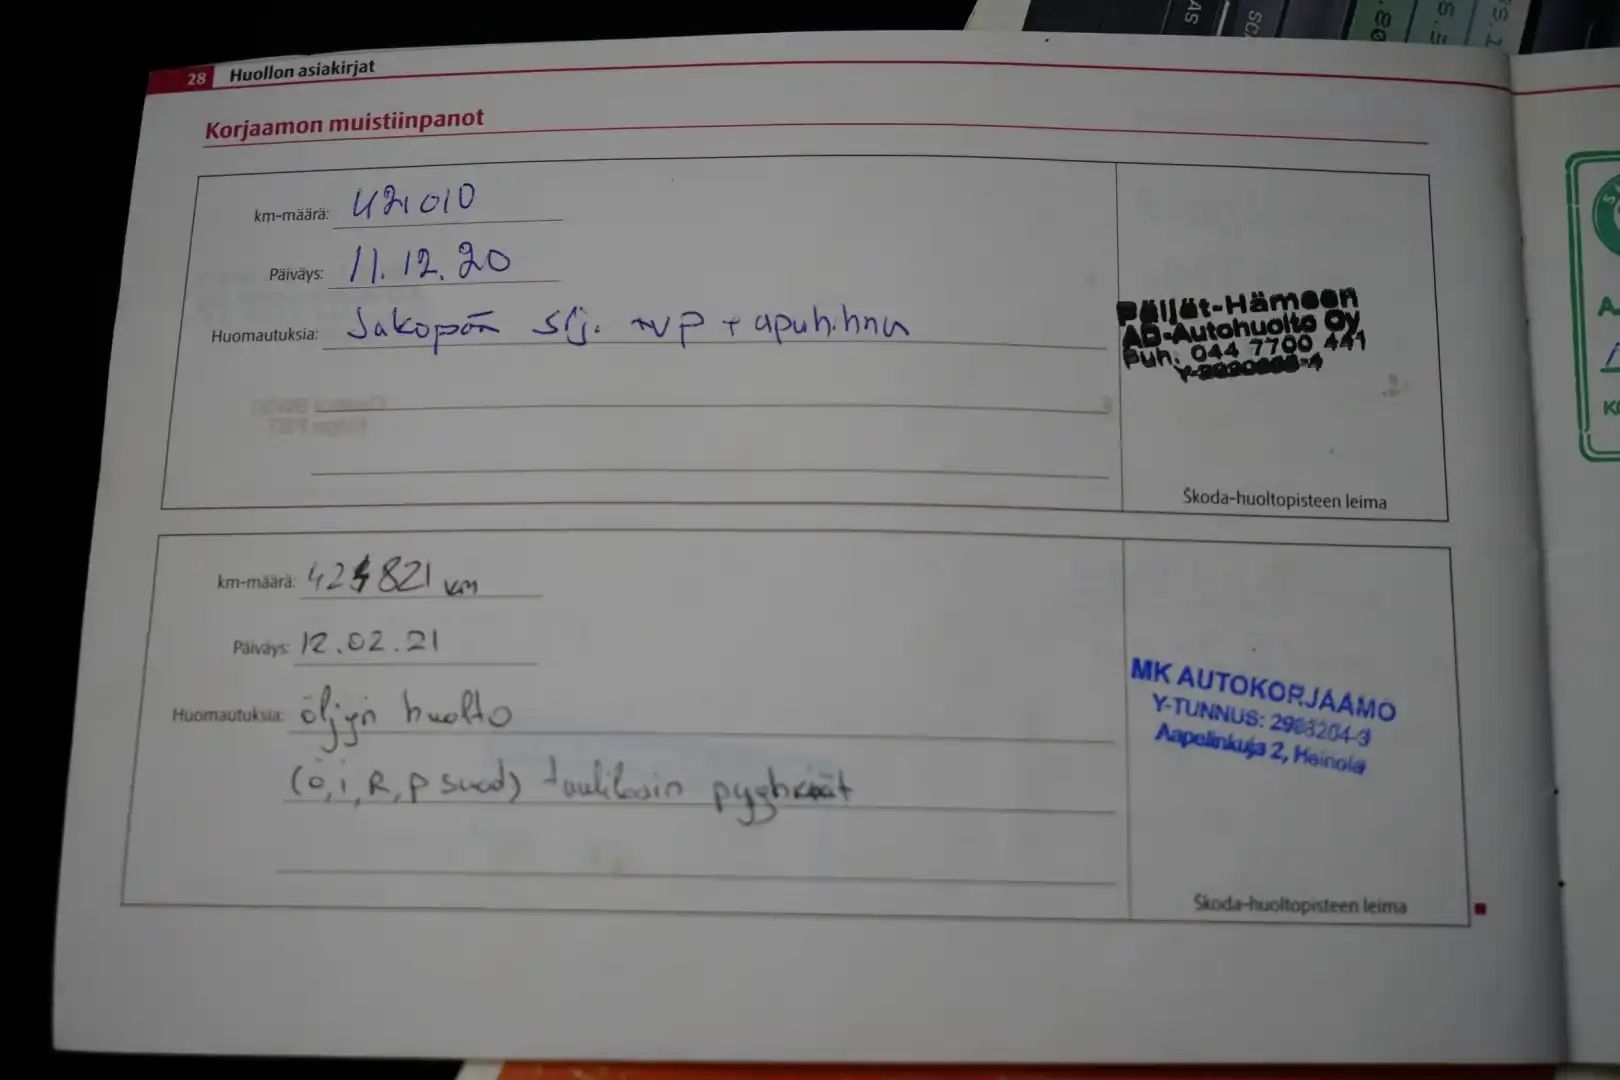 28 Huollon asiakirjat
Korjaamon muistiinpanot
km-määrä: 421010
Päiväys: 11.12.20
Huomautuksia: Jakopään slj. + VP + apuh.hna
Päijät-Hämeen
AD-Autohuolto Oy
Puh. 044 7700 441
Škoda-huoltopisteen leima
km-määrä: 424821 km
Päiväys: 12.02.21
Huomautuksia: öljyn huolto
(ö, i, R, p suod) tuulilasin pyyhkijät
MK AUTOKORJAAMO
Y-TUNNUS: 2983204-3
Aapelinkuja 2, Heinola
Škoda-huoltopisteen leima